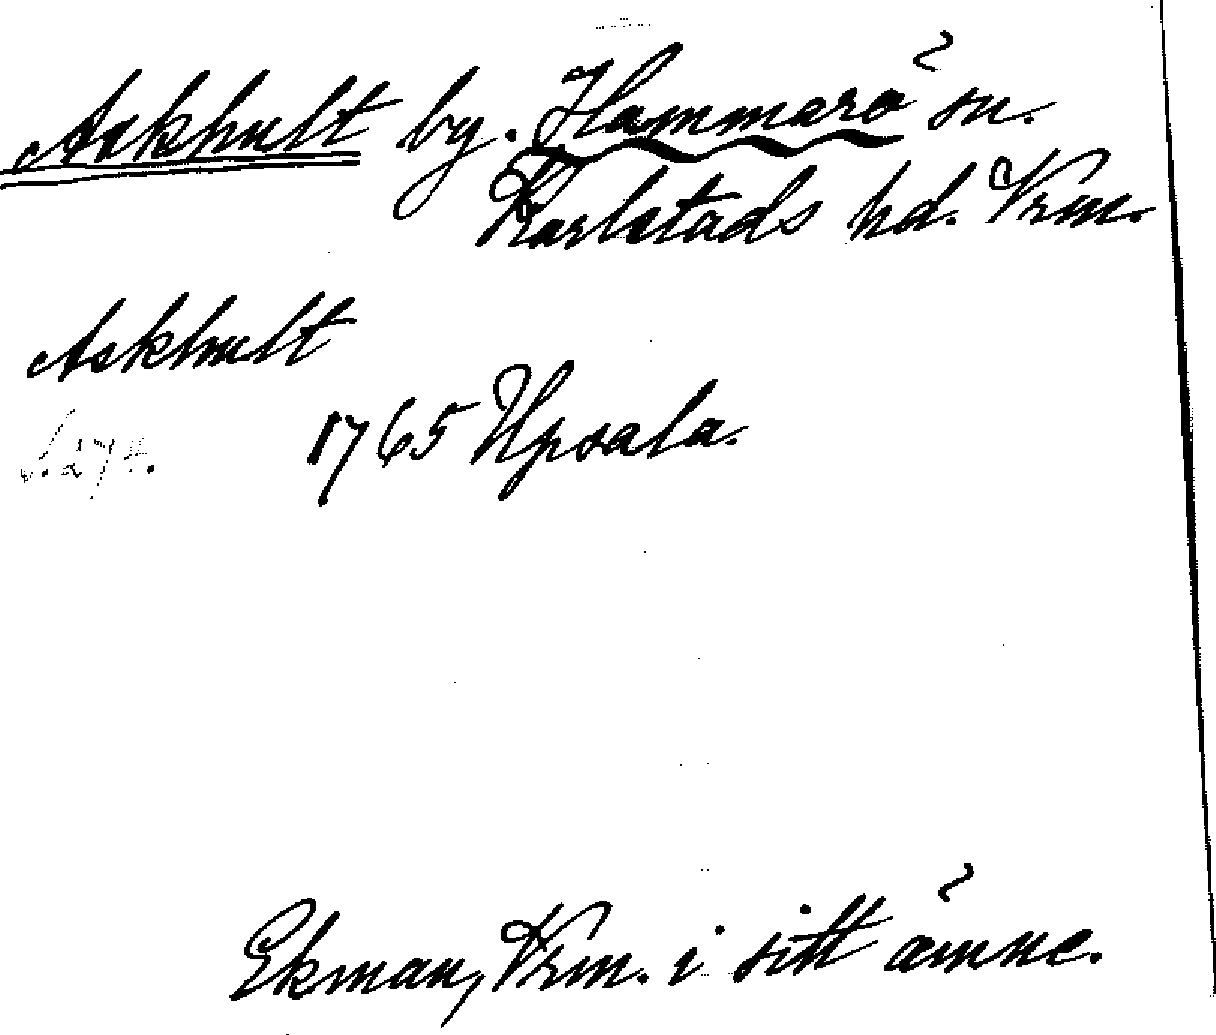 Askhult by. Hammarö sn.
Karlstads hd. Vrm.
Askhult
S. 274.
1765 Upsala.
Ekman, Vrm. i sitt ämne.